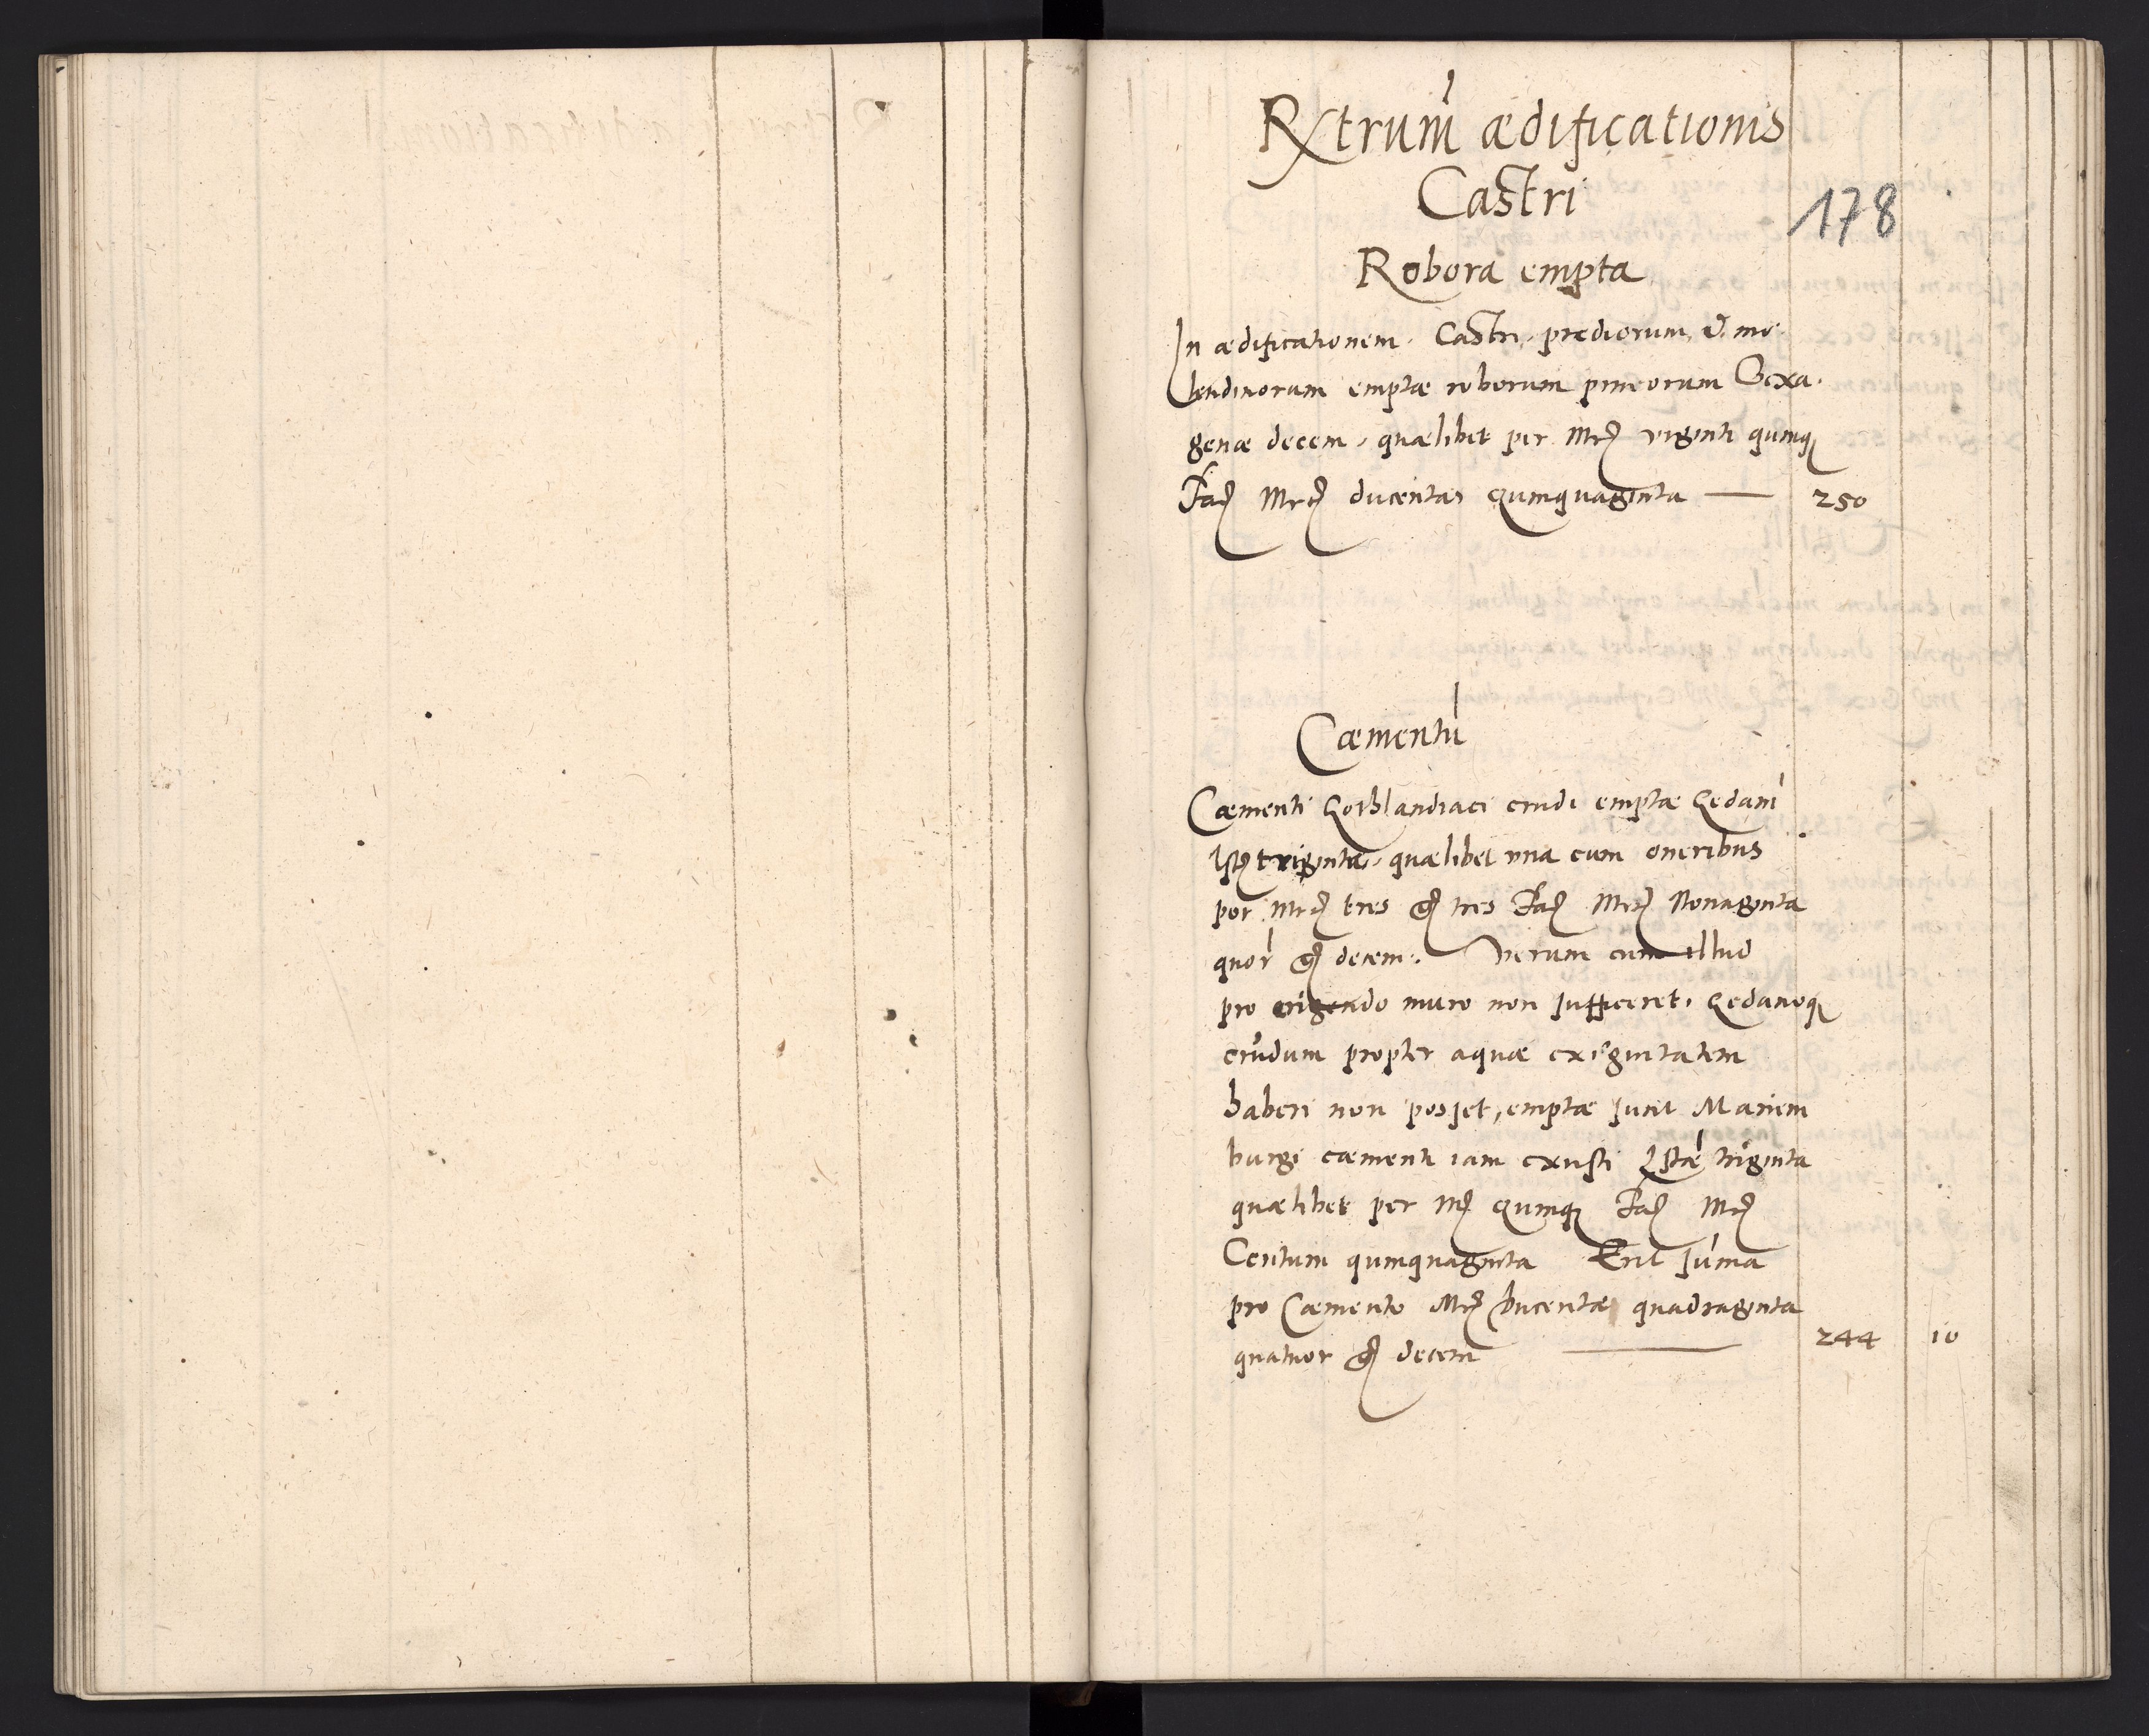 Rxtrum aedificationis
Castri
178
Robora empta
In aedificationem Castri praediorum & mo
lendinorum emptae roborum pineorum Sexa
genae decem, quaelibet per Mrc viginti quinq
Fac Mrc ducentas Quinquaginta — 250
Caementū
Caementi Gothlandiaci crudi emptae Gedani
lst triginta, quaelibet una cum oneribus
per Mrc tres g tres Fac Mrc Nonaginta
quor g decem. Verum cum illud
pro erigendo muro non sufficeret, Gedanoq
crudum propter aquae exiguitatem
haberi non posset, emptae sunt Mariem
burgi caementi iam exusti Lstae triginta
quaelibet per M Quinq Fac Mrc
Centum quinquaginta Erit suma
pro Caemento Mrc Ducentae quadraginta
quatuor g decem — 244 10